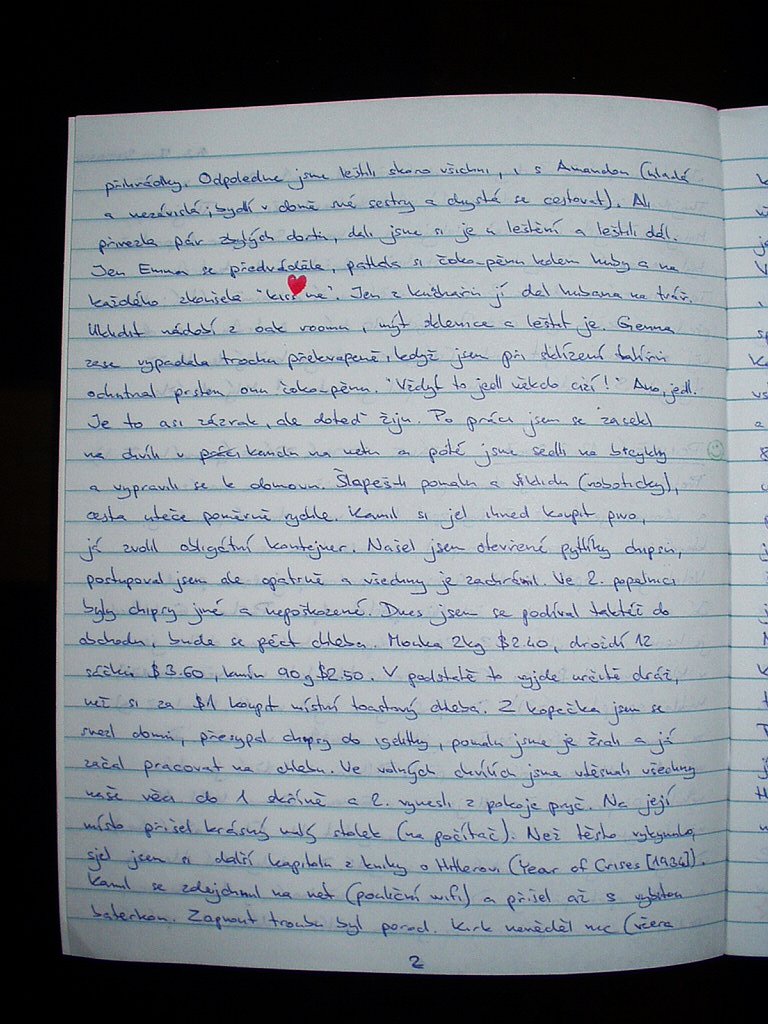 přihrádky. Odpoledne jsme leštili skoro všichni, i s Amandou (mladá
a nezávislá; bydlí v domě své sestry a chystá se cestovat). Ali
přivezla pár zbylých dortů, dali jsme si je u leštění a leštili dál.
Jen Emma se předváděla, patlala si čoko-pěnu kolem huby a na
každého zkoušela "kiss me". Jen z kuchařů jí dal hubana na tvář.
Uklidit nádobí z oak roomu, mýt sklenice a leštit je. Gemma
zase vypadala trochu překvapeně, když jsem při sklízení talířů
ochutnal prstem onu čoko-pěnu. "Vždyť to jedl někdo cizí!" Ano, jedl.
Je to asi zázrak, ale doteď žiju. Po práci jsem se zasekl
na chvíli v kanclu na netu a poté jsme sedli na bicykly
a vypravili se k domovu. Šlapeš-li pomalu a v klidu (roboticky),
cesta uteče poměrně rychle. Kamil si jel ihned koupit pivo,
já zvolil obligátní kontejner. Našel jsem otevřené pytlíky chipsů,
postupoval jsem ale opatrně a všechny je zachránil. Ve 2. popelnici
byly chipsy jiné a nepoškozené. Dnes jsem se podíval taktéž do
obchodu, bude se péct chleba. Mouka 2kg $2.40, droždí 12
sáčků $3.60, kmín 90g $2.50. V podstatě to vyjde určitě dráž,
než si za $1 koupit místní toastový chleba. Z kopečka jsem se
svezl domů, přesypal chipsy do igelitky, pomalu jsme je žrali a já
začal pracovat na chlebu. Ve volných chvílích jsme vtěsnali všechny
naše věci do 1 skříně a 2. vynesli z pokoje pryč. Na její
místo přišel krásný malý stolek (na počítač). Než těsto vykynulo,
sjel jsem si další kapitolu z knihy o Hitlerovi (Year of Crises [1934]).
Kamil se zdejchnul na net (pouliční wifi) a přišel až s vybitou
baterkou. Zapnout troubu byl porod. Kirk nevěděl nic (včera
2